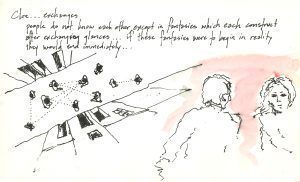 Cloe... exchanges
people do not know each other except in fantasies which each construct
after exchanging glances... if these fantasies were to begin in reality
they would end immediately...